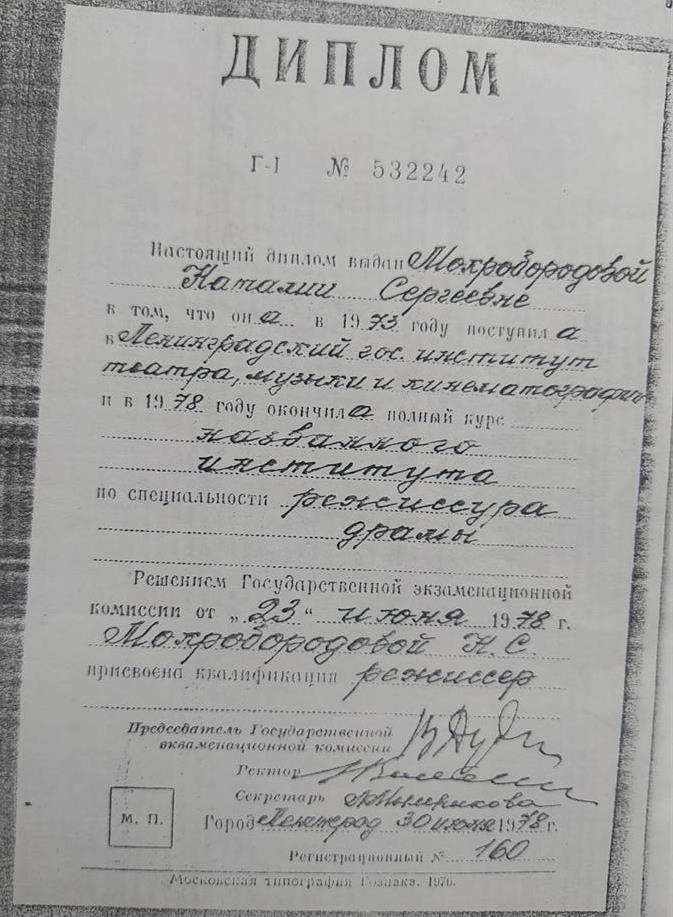 ДИПЛОМ
Г-I № 532242
Настоящий диплом выдан Мокробородовой
Наталии Сергеевне
в том, что она в 1973 году поступила
в Ленинградский гос. институт
театра, музыки и кинематографии
и в 1978 году окончила полный курс
названного
института
по специальности режиссура
драмы
Решением Государственной экзаменационной
комиссии от „23“ июня 1978 г.
Мокробородовой Н. С.
присвоена квалификация режиссер
Председатель Государственной
экзаменационной комиссии
Ректор
Секретарь
М. П.
Город Ленинград 30 июня 1978 г.
Регистрационный № 160
Московская типография Гознака. 1976.